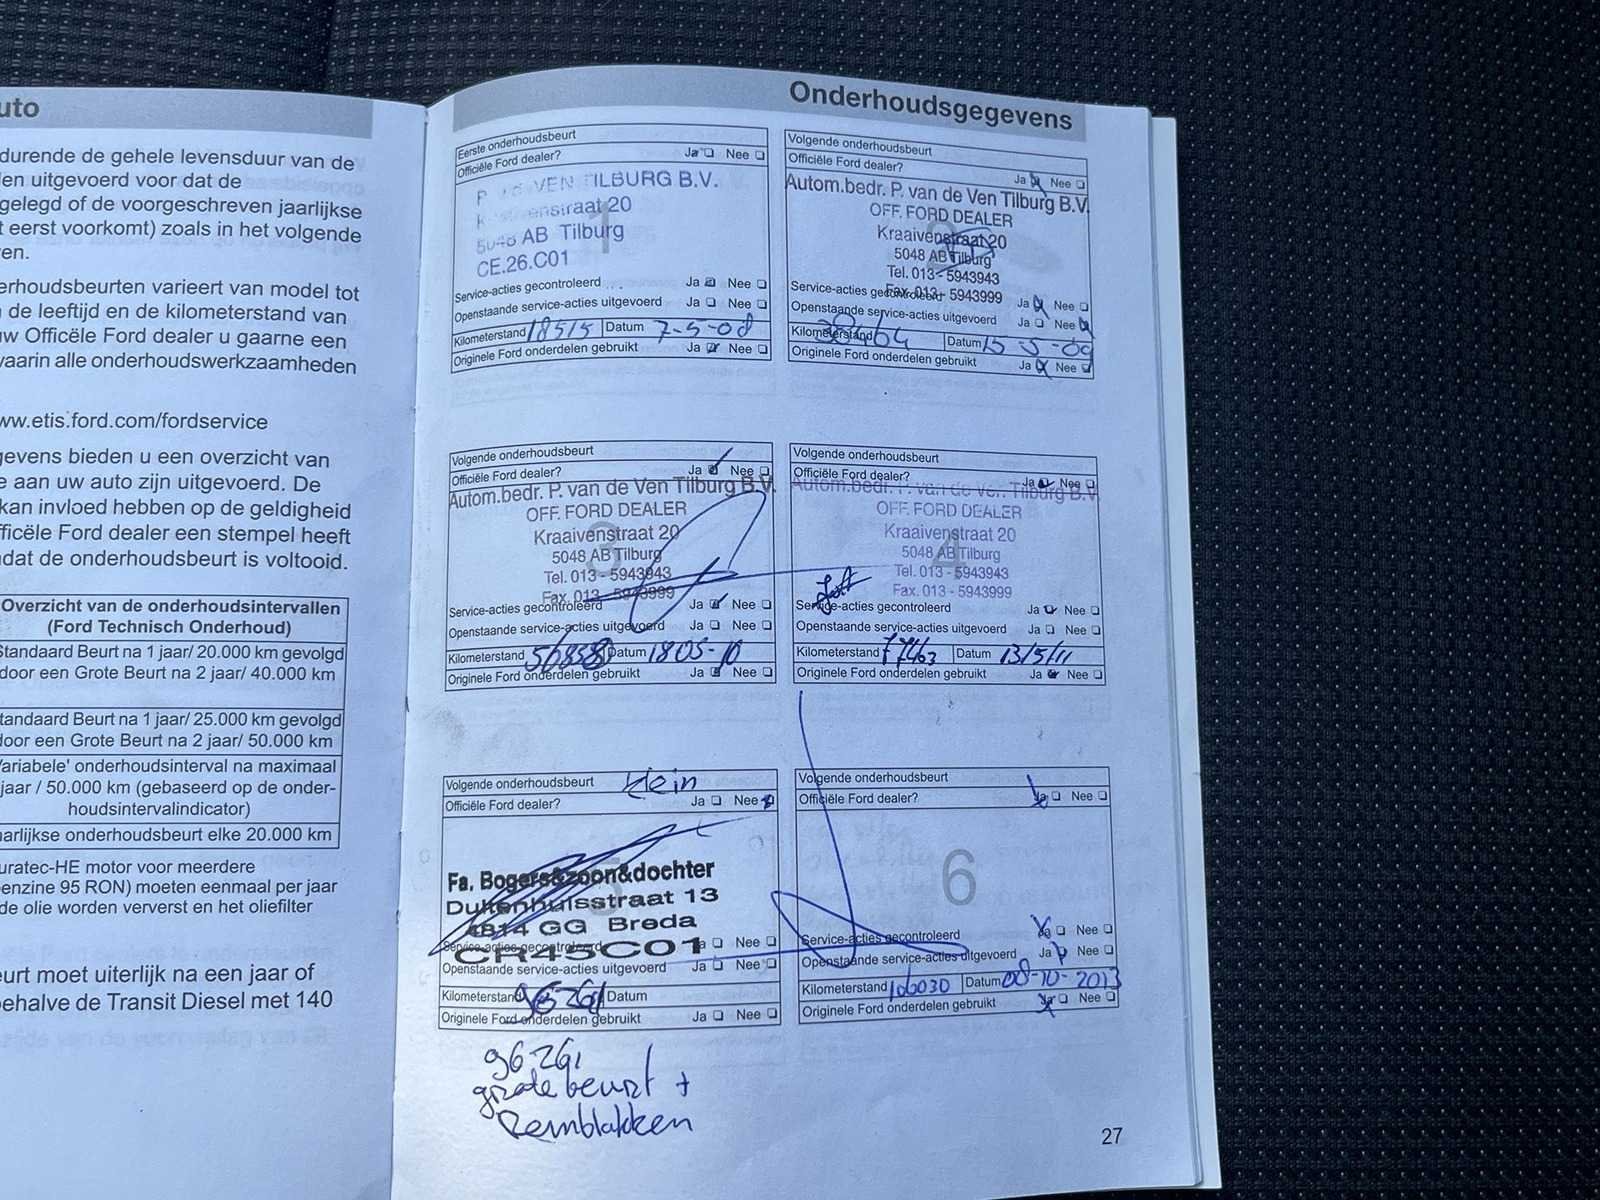 uto
durende de gehele levensduur van de
len uitgevoerd voor dat de
gelegd of de voorgeschreven jaarlijkse
t eerst voorkomt) zoals in het volgende
ven.
erhoudsbeurten varieert van model tot
de leeftijd en de kilometerstand van
uw Officële Ford dealer u gaarne een
waarin alle onderhoudswerkzaamheden
ww.etis.ford.com/fordservice
gevens bieden u een overzicht van
e aan uw auto zijn uitgevoerd. De
kan invloed hebben op de geldigheid
fficële Ford dealer een stempel heeft
dat de onderhoudsbeurt is voltooid.
Overzicht van de onderhoudsintervallen
(Ford Technisch Onderhoud)
Standaard Beurt na 1 jaar/ 20.000 km gevolgd
door een Grote Beurt na 2 jaar/ 40.000 km
tandaard Beurt na 1 jaar/ 25.000 km gevolgd
door een Grote Beurt na 2 jaar/ 50.000 km
'ariabele' onderhoudsinterval na maximaal
jaar / 50.000 km (gebaseerd op de onder-
houdsintervalindicator)
aarlijkse onderhoudsbeurt elke 20.000 km
uratec-HE motor voor meerdere
benzine 95 RON) moeten eenmaal per jaar
de olie worden ververst en het oliefilter
eurt moet uiterlijk na een jaar of
behalve de Transit Diesel met 140
Onderhoudsgegevens
Eerste onderhoudsbeurt
Officiële Ford dealer? Ja Nee
VEN TILBURG B.V.
straat 20
5048 AB Tilburg
CE.26.C01
1
Service-acties gecontroleerd Ja Nee
Openstaande service-acties uitgevoerd Ja Nee
Kilometerstand 18515 Datum 7-5-08
Originele Ford onderdelen gebruikt Ja Nee
Volgende onderhoudsbeurt
Officiële Ford dealer? Ja Nee
Autom.bedr. P. van de Ven Tilburg B.V.
OFF. FORD DEALER
Kraaivenstraat 20
5048 AB Tilburg
Tel. 013 - 5943943
Fax. 013 - 5943999
2
Service-acties gecontroleerd Ja Nee
Openstaande service-acties uitgevoerd Ja Nee
Kilometerstand Datum 15-5-09
Originele Ford onderdelen gebruikt Ja Nee
Volgende onderhoudsbeurt
Officiële Ford dealer? Ja Nee
Autom.bedr. P. van de Ven Tilburg B.V.
OFF. FORD DEALER
Kraaivenstraat 20
5048 AB Tilburg
Tel. 013 - 5943943
Fax. 013 - 5943999
3
Service-acties gecontroleerd Ja Nee
Openstaande service-acties uitgevoerd Ja Nee
Kilometerstand Datum 18-05-10
Originele Ford onderdelen gebruikt Ja Nee
Volgende onderhoudsbeurt
Officiële Ford dealer? Ja Nee
Autom.bedr. P. van de Ven Tilburg B.V.
OFF. FORD DEALER
Kraaivenstraat 20
5048 AB Tilburg
Tel. 013 - 5943943
Fax. 013 - 5943999
4
Service-acties gecontroleerd Ja Nee
Openstaande service-acties uitgevoerd Ja Nee
Kilometerstand 77463 Datum 13/5/11
Originele Ford onderdelen gebruikt Ja Nee
Volgende onderhoudsbeurt klein
Officiële Ford dealer? Ja Nee
Fa. Bogers&zoon&dochter
Duitenhuisstraat 13
4814 GG Breda
CR45C01
5
Service-acties gecontroleerd Ja Nee
Openstaande service-acties uitgevoerd Ja Nee
Kilometerstand 96261 Datum
Originele Ford onderdelen gebruikt Ja Nee
96-261
grote beurt +
Remblakken
Volgende onderhoudsbeurt
Officiële Ford dealer? Ja Nee
6
Service-acties gecontroleerd Ja Nee
Openstaande service-acties uitgevoerd Ja Nee
Kilometerstand 106030 Datum 08-10-2013
Originele Ford onderdelen gebruikt Ja Nee
27